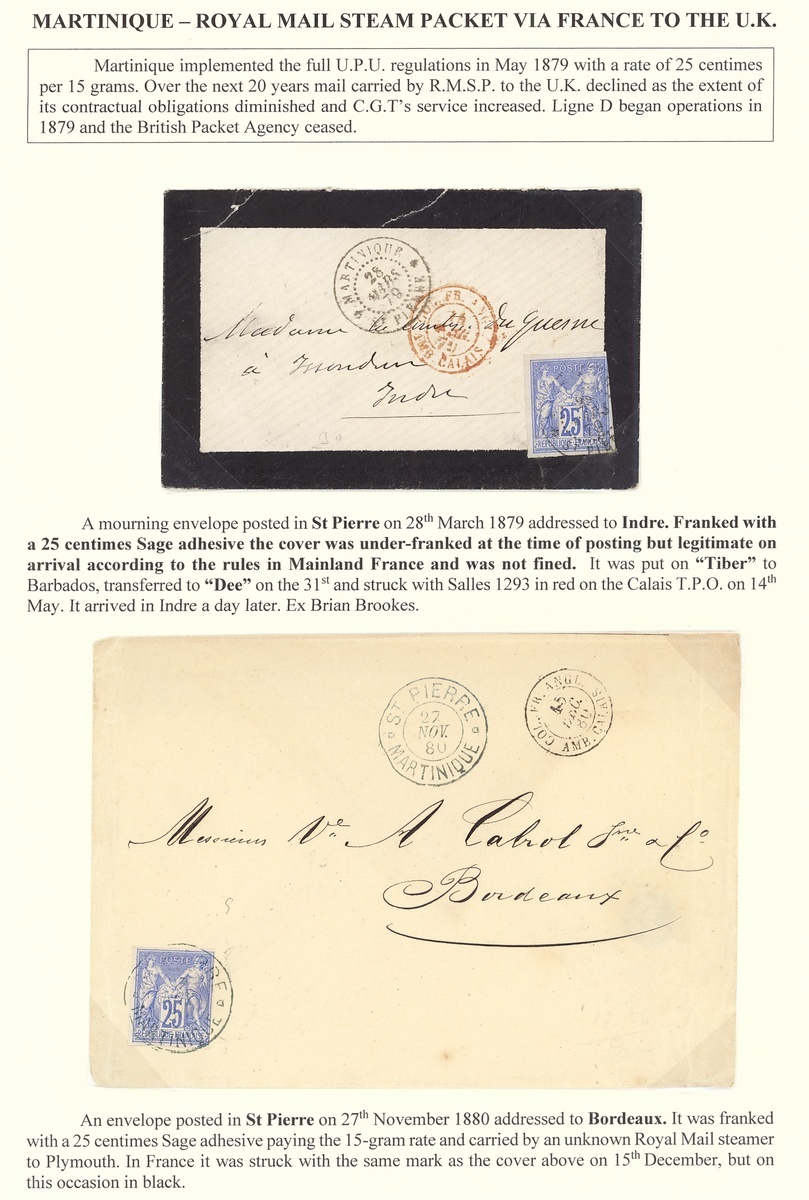 MARTINIQUE – ROYAL MAIL STEAM PACKET VIA FRANCE TO THE U.K.
Martinique implemented the full U.P.U. regulations in May 1879 with a rate of 25 centimes
per 15 grams. Over the next 20 years mail carried by R.M.S.P. to the U.K. declined as the extent of
its contractual obligations diminished and C.G.T's service increased. Ligne D began operations in
1879 and the British Packet Agency ceased.
MARTINIQUE
28
MARS
79
ST PIERRE
COL. FR. ANGL.
AMB. CALAIS
Madame Duquesne
à Issoudun
Indre
POSTE
25
REPUBLIQUE FRANÇAISE
A mourning envelope posted in St Pierre on 28th March 1879 addressed to Indre. Franked with
a 25 centimes Sage adhesive the cover was under-franked at the time of posting but legitimate on
arrival according to the rules in Mainland France and was not fined. It was put on "Tiber" to
Barbados, transferred to "Dee" on the 31st and struck with Salles 1293 in red on the Calais T.P.O. on 14th
May. It arrived in Indre a day later. Ex Brian Brookes.
ST PIERRE
27
NOV.
80
MARTINIQUE
COL. FR. ANGL.
15
DEC.
80
AMB. CALAIS
Messieurs Ve A Cabrol Jne & Co
Bordeaux
POSTE
25
REPUBLIQUE FRANÇAISE
MARTINIQUE
An envelope posted in St Pierre on 27th November 1880 addressed to Bordeaux. It was franked
with a 25 centimes Sage adhesive paying the 15-gram rate and carried by an unknown Royal Mail steamer
to Plymouth. In France it was struck with the same mark as the cover above on 15th December, but on
this occasion in black.